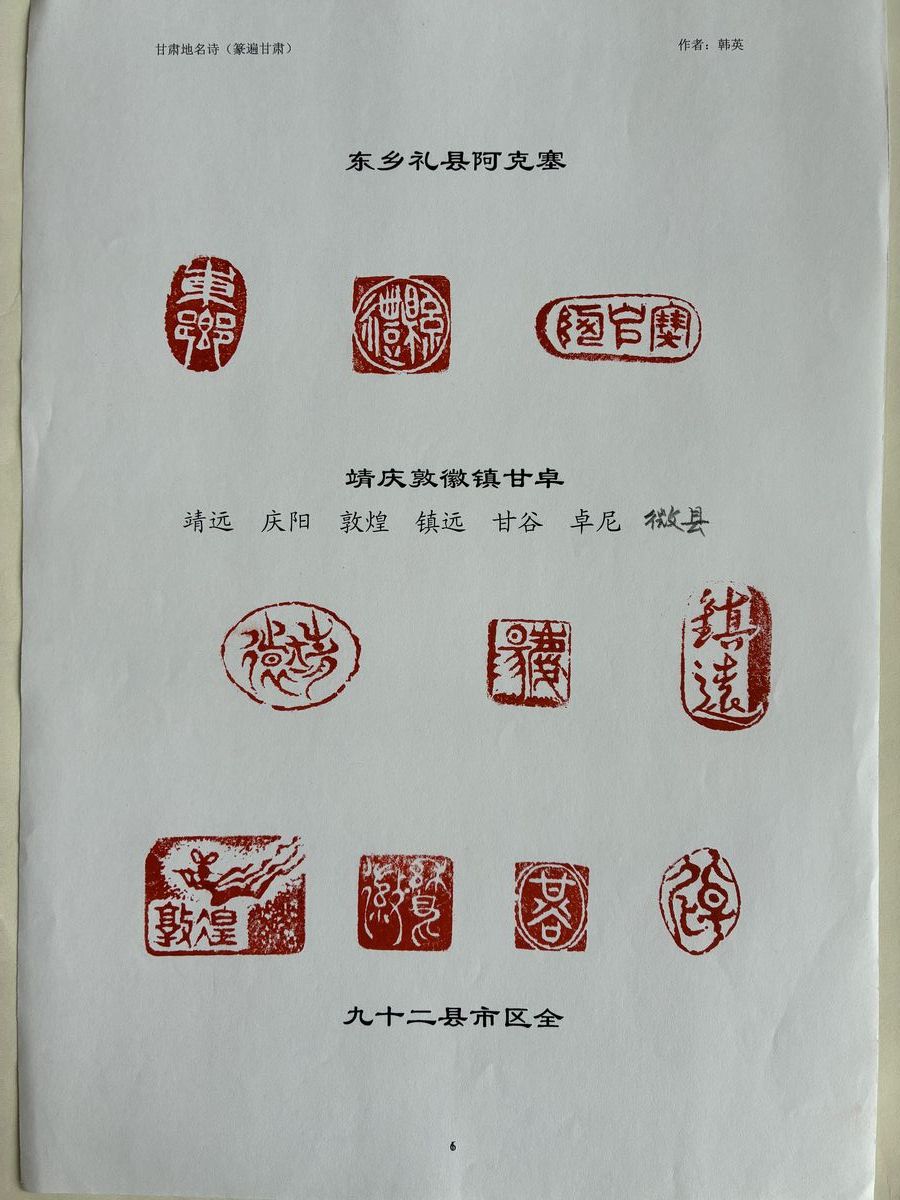 甘肃地名诗（篆遍甘肃）
作者：韩英
东乡礼县阿克塞
東鄉
禮縣
阿克塞
靖庆敦徽镇甘卓
靖远 庆阳 敦煌 镇远 甘谷 卓尼 徽县
靖遠
慶陽
鎮遠
敦煌
徽縣
甘谷
卓尼
九十二县市区全
6